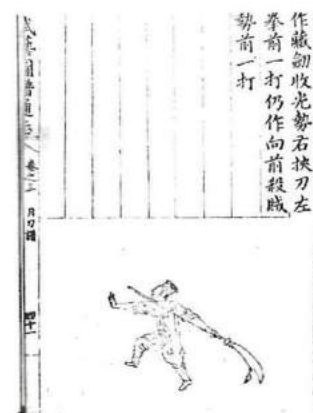 作藏劍收光勢右挾刀左
拳前一打仍作向前殺賊
勢前一打
武藝圖譜通志
卷之三
月刀譜
四十一